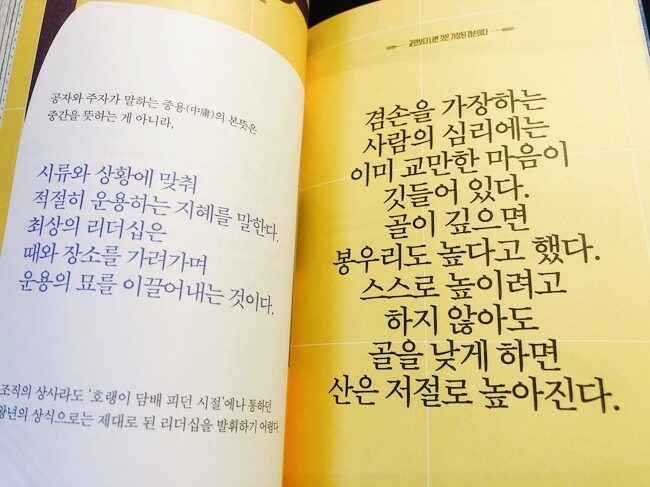 공자와 주자가 말하는 중용(中庸)의 본뜻은
중간을 뜻하는 게 아니라,
시류와 상황에 맞춰
적절히 운용하는 지혜를 말한다.
최상의 리더십은
때와 장소를 가려가며
운용의 묘를 이끌어내는 것이다.
조직의 상사라도 ‘호랭이 담배 피던 시절’에나 통하던
왕년의 상식으로는 제대로 된 리더십을 발휘하기 어렵다.
교만보다 나쁜 것은 가장된 겸손이다
겸손을 가장하는
사람의 심리에는
이미 교만한 마음이
깃들어 있다.
골이 깊으면
봉우리도 높다고 했다.
스스로 높이려고
하지 않아도
골을 낮게 하면
산은 저절로 높아진다.